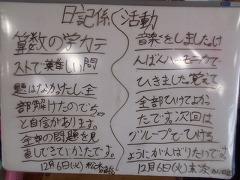 日記係 活動
算数の学力テ
ストで、難しい問
題はなかたし、全
部解けたのでち。
と自信があります。
全部の問題を見
直しできていかたです。
12月6日(火)
音楽をしました。け
んばんハーモニーカで
ひきました。覚えて
全部ひけてよか
たです。次回は
グループで、ひける
ようにがんばりたいです。
12月6日(火)